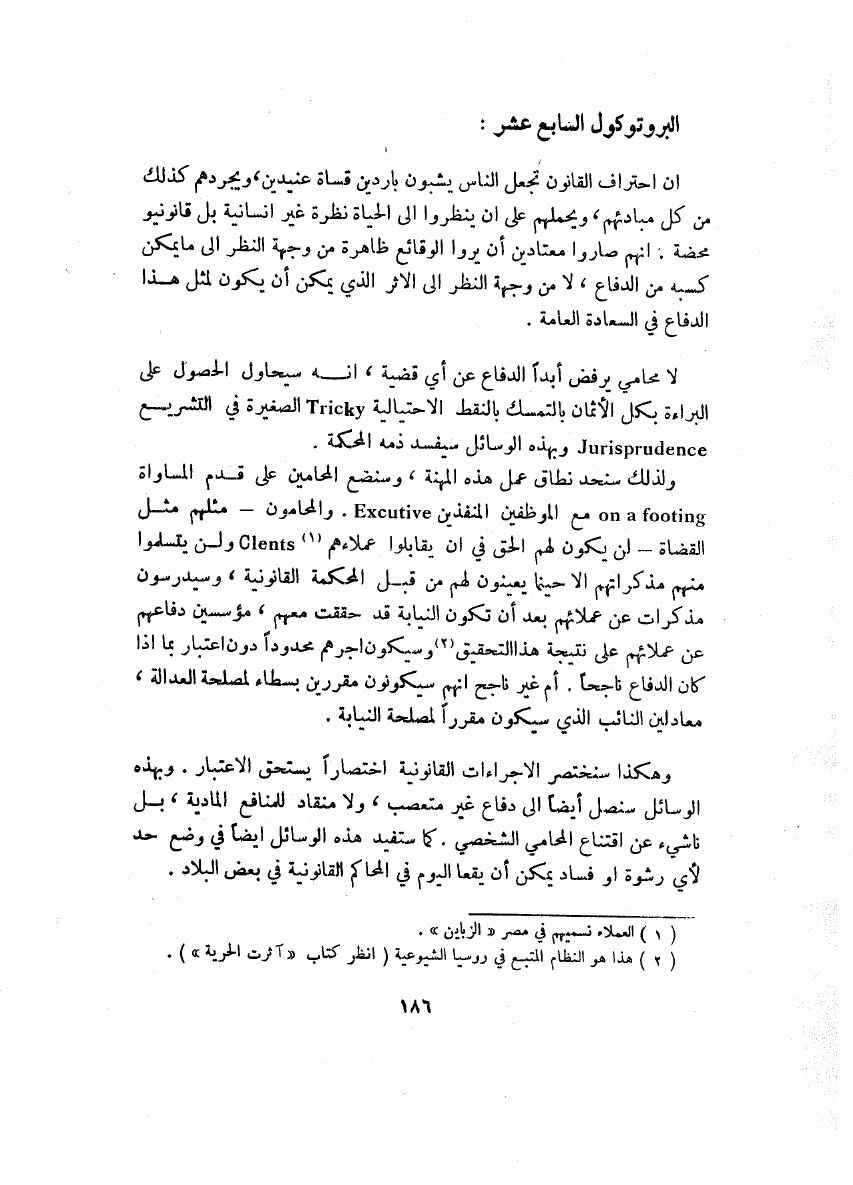 البروتوكول السابع عشر :
ان احتراف القانون تجعل الناس يشبون باردين قساة عنيدين، ويجردهم كذلك
من كل مبادئهم، ويحملهم على ان ينظروا الى الحياة نظرة غير انسانية بل قانونيو
محضة . انهم صاروا معتادين أن يروا الوقائع ظاهرة من وجهة النظر الى مايمكن
كسبه من الدفاع ، لا من وجهة النظر الى الاثر الذي يمكن أن يكون لمثل هـذا
الدفاع في السعادة العامة .
لا محامي يرفض أبداً الدفاع عن أي قضية ، انـــه سيحاول الحصول على
البراءة بكل الأثمان بالتمسك بالنقط الاحتيالية Tricky الصغيرة في التشريــع
Jurisprudence وبهذه الوسائل سيفسد ذمه المحكمة .
ولذلك سنحد نطاق عمل هذه المهنة ، وسنضع المحامين على قـدم المساواة
on a footing مع الموظفين المنفذين Excutive . والمحامون – مثلهم مثـل
القضاة – لن يكون لهم الحق في ان يقابلوا عملاءهم (١) Clents ولـن يتسلموا
منهم مذكراتهم الا حينما يعينون لهم من قبـل المحكمة القانونية ، وسيدرسون
مذكرات عن عملائهم بعد أن تكون النيابة قد حققت معهم ، مؤسسين دفاعهم
عن عملائهم على نتيجة هذاالتحقيق(٢)وسيكون اجرهم محدوداً دون اعتبار بما اذا
كان الدفاع ناجحاً . أم غير ناجح انهم سيكونون مقررين بسطاء لمصلحة العدالة ،
معادلين النائب الذي سيكون مقرراً لمصلحة النيابة .
وهكذا سنختصر الاجراءات القانونية اختصاراً يستحق الاعتبار . وبهذه
الوسائل سنصل أيضاً الى دفاع غير متعصب ، ولا منقاد للمنافع المادية ، بـل
ناشيء عن اقتناع المحامي الشخصي . كما ستفيد هذه الوسائل ايضاً في وضع حد
لأي رشوة او فساد يمكن أن يقعا اليوم في المحاكم القانونية في بعض البلاد .
( ١ ) العملاء نسميهم في مصر « الزباين » .
( ٢ ) هذا هو النظام المتبع في روسيا الشيوعية ( انظر كتاب « آثرت الحرية » ) .
١٨٦